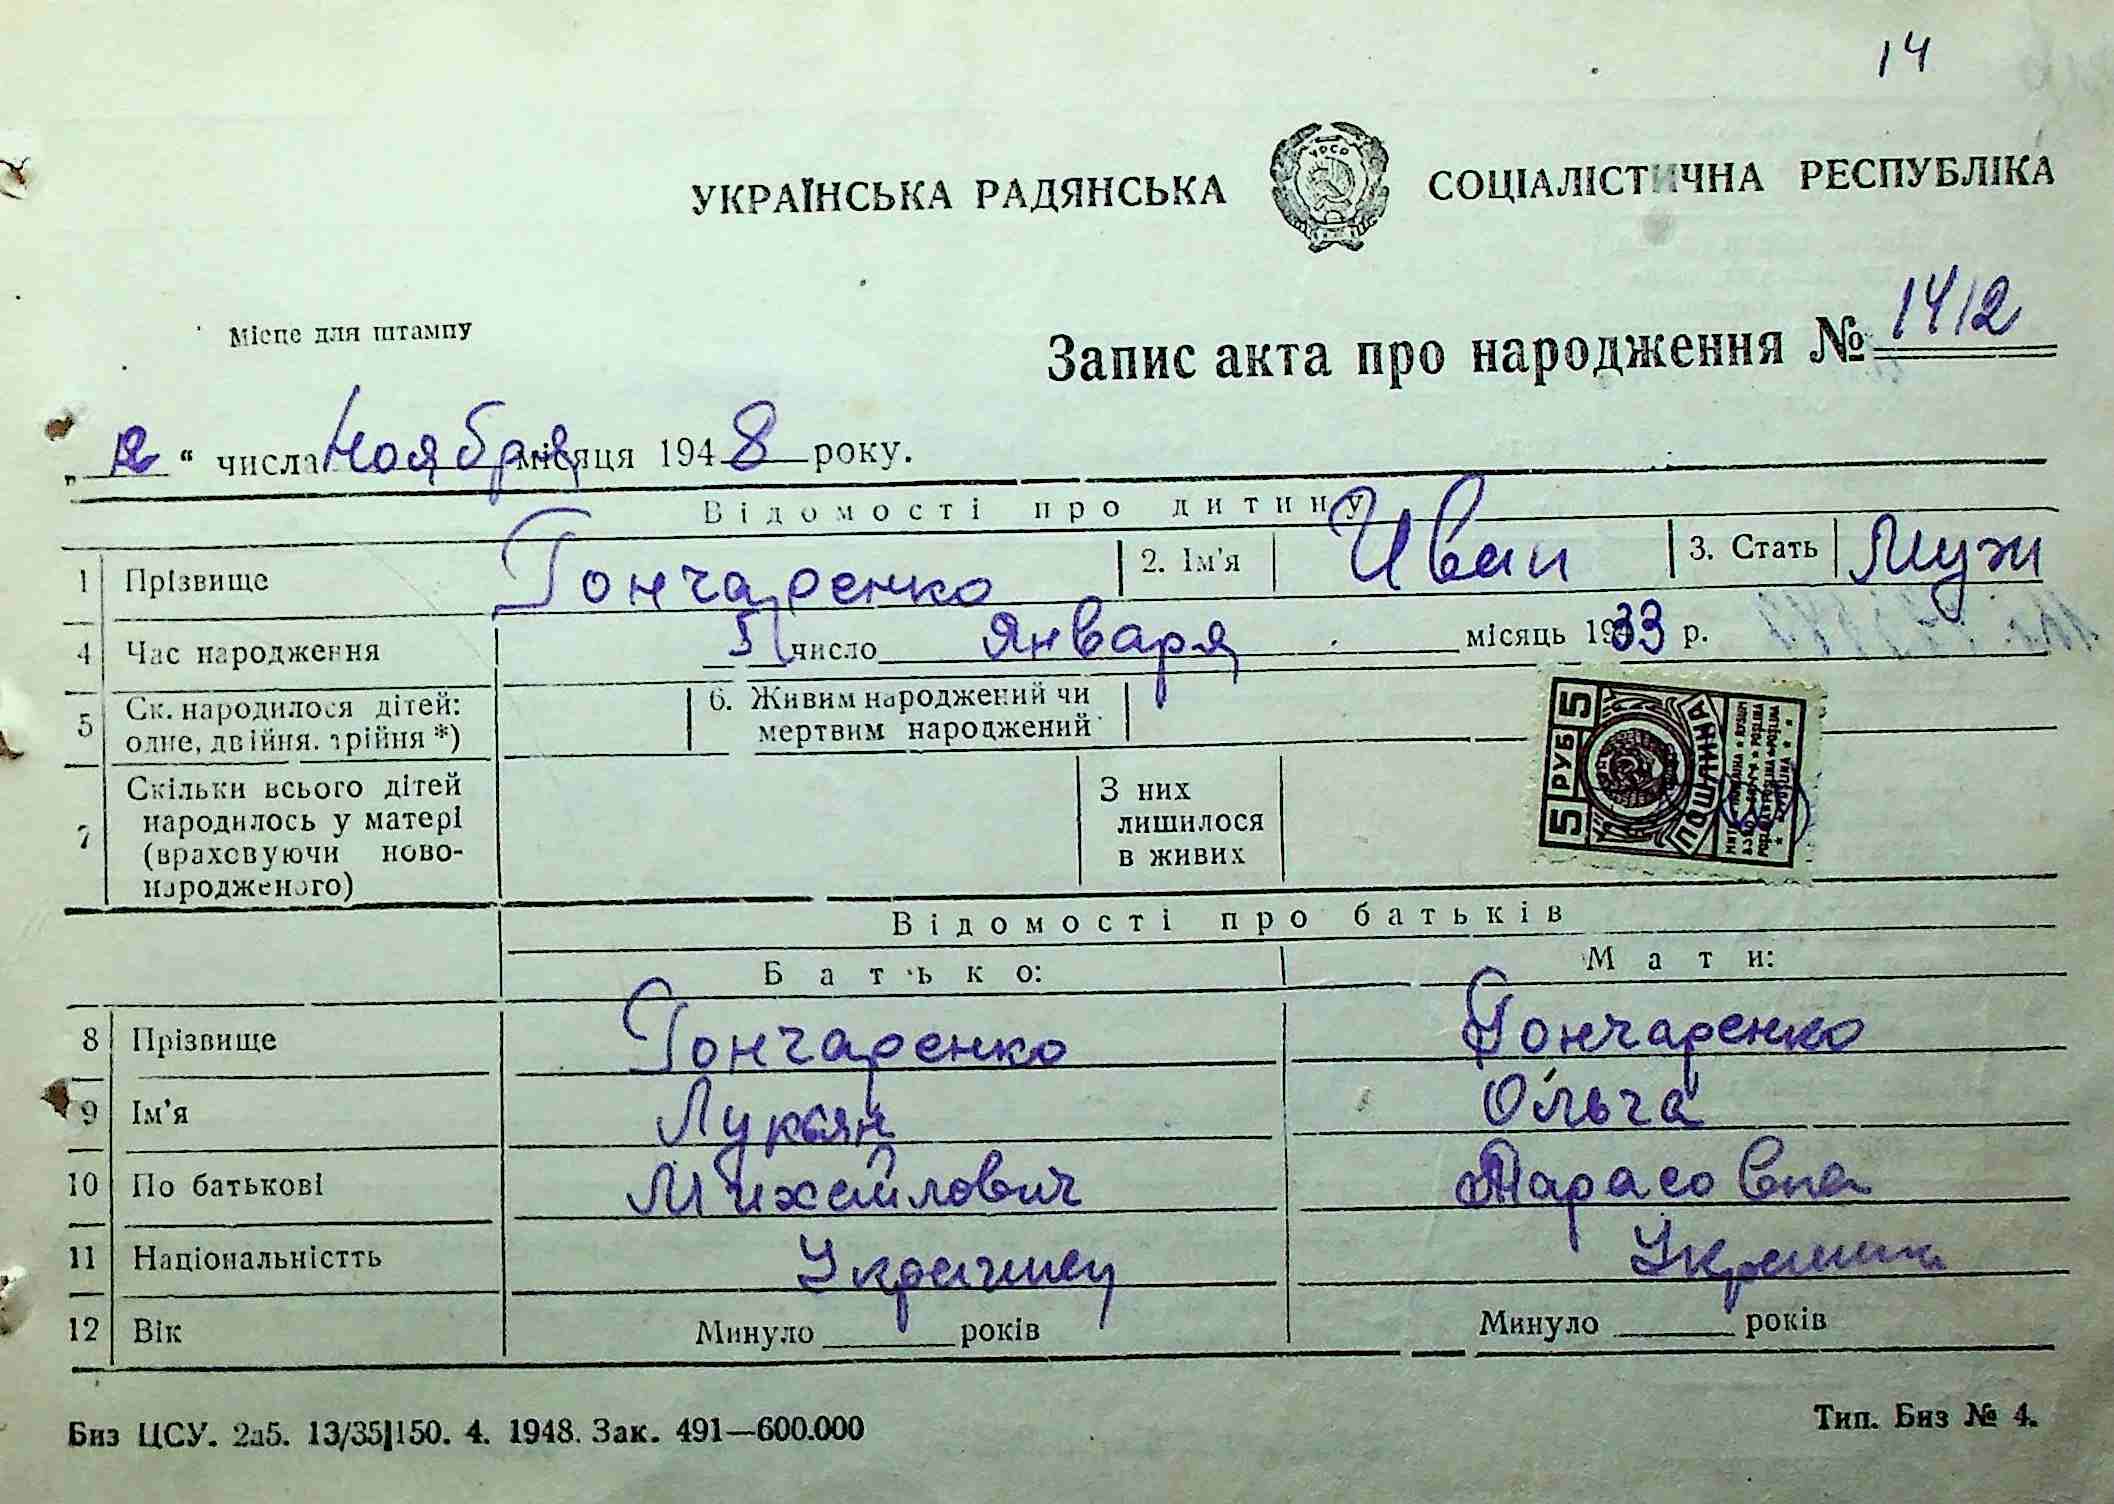 14
УКРАЇНСЬКА РАДЯНСЬКА СОЦІАЛІСТИЧНА РЕСПУБЛІКА
УРСР
Місце для штампу
Запис акта про народження № 1412
„ 12 “ числа Ноября місяця 1948 року.
Відомості про дитину
1 Прізвище Гончаренко 2. Ім'я Иван 3. Стать Муж
4 Час народження 5 число Января місяць 1933 р.
5 Ск. народилося дітей: одне, двійня, трійня *) 6. Живим народжений чи мертвим народжений
5 РУБ 5 ПОШЛИНА
7 Скільки всього дітей народилось у матері (враховуючи ново-народженого) З них лишилося в живих
Відомості про батьків
Батько: Мати:
8 Прізвище Гончаренко Гончаренко
9 Ім'я Лукян Ольга
10 По батькові Михайлович Тарасовна
11 Національністть Украинец Украинк
12 Вік Минуло ______ років Минуло ______ років
Биз ЦСУ. 2а5. 13/35|150. 4. 1948. Зак. 491—600.000 Тип. Биз № 4.